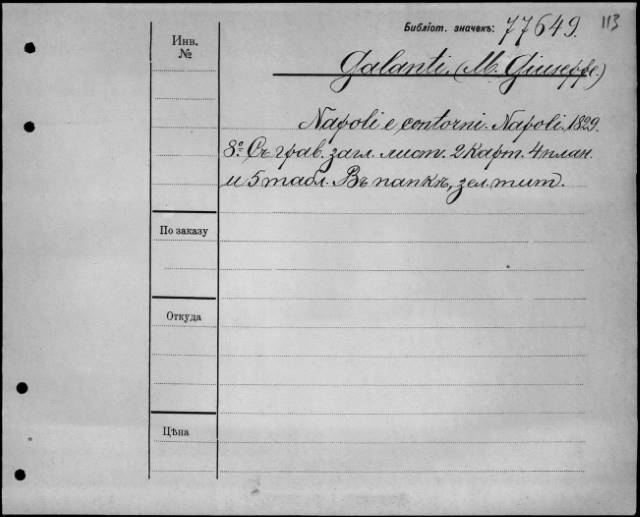 113
Библіот. значекъ: 77649.
Инв.
№
Galanti, (M. Giuseppe.)
Napoli e contorni. Napoli, 1829.
8º. Съ грав. загл. лист. 2 карт. 4 план.
и 5 табл. Въ папкѣ, зел. тит.
По заказу
Откуда
Цѣна